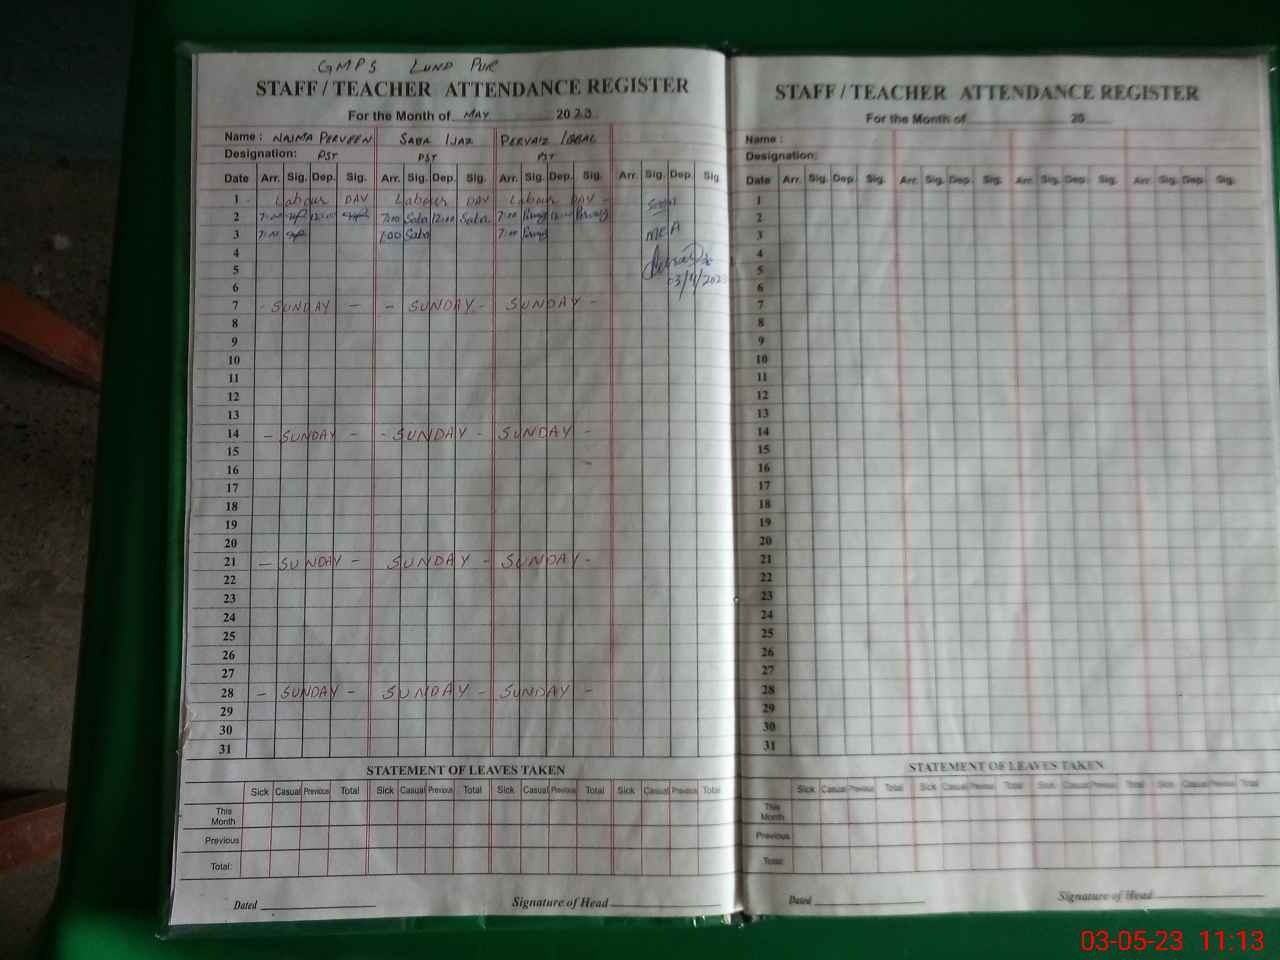 GMPS LUND PUR
STAFF / TEACHER ATTENDANCE REGISTER
For the Month of MAY 2023
Name : NAJMA PERVEEN SABA IJAZ PERVAIZ IQBAL
Designation: PST PST PST
Date Arr. Sig. Dep. Sig. Arr. Sig. Dep. Sig. Arr. Sig. Dep. Sig. Arr. Sig. Dep. Sig.
1 Labour DAY Labour DAY Labour DAY -
2 7:00 12:00 7:00 Saba 12:00 Saba 7:00 12:00
3 7:00 7:00 Saba 7:00 MEA
4
5
6
7 - SUNDAY - - SUNDAY - SUNDAY -
8
9
10
11
12
13
14 - SUNDAY - - SUNDAY - SUNDAY -
15
16
17
18
19
20
21 - SUNDAY - SUNDAY - SUNDAY -
22
23
24
25
26
27
28 - SUNDAY - SUNDAY - SUNDAY -
29
30
31
STATEMENT OF LEAVES TAKEN
Sick Casual Previous Total Sick Casual Previous Total Sick Casual Previous Total Sick Casual Previous Total
This Month
Previous
Total:
Dated Signature of Head
STAFF / TEACHER ATTENDANCE REGISTER
For the Month of 20
Name :
Designation:
Date Arr. Sig. Dep. Sig. Arr. Sig. Dep. Sig. Arr. Sig. Dep. Sig. Arr. Sig. Dep. Sig.
1
2
3
4
5
6
7
8
9
10
11
12
13
14
15
16
17
18
19
20
21
22
23
24
25
26
27
28
29
30
31
STATEMENT OF LEAVES TAKEN
Sick Casual Previous Total Sick Casual Previous Total Sick Casual Previous Total Sick Casual Previous Total
This Month
Previous
Total:
Dated Signature of Head
03-05-23 11:13